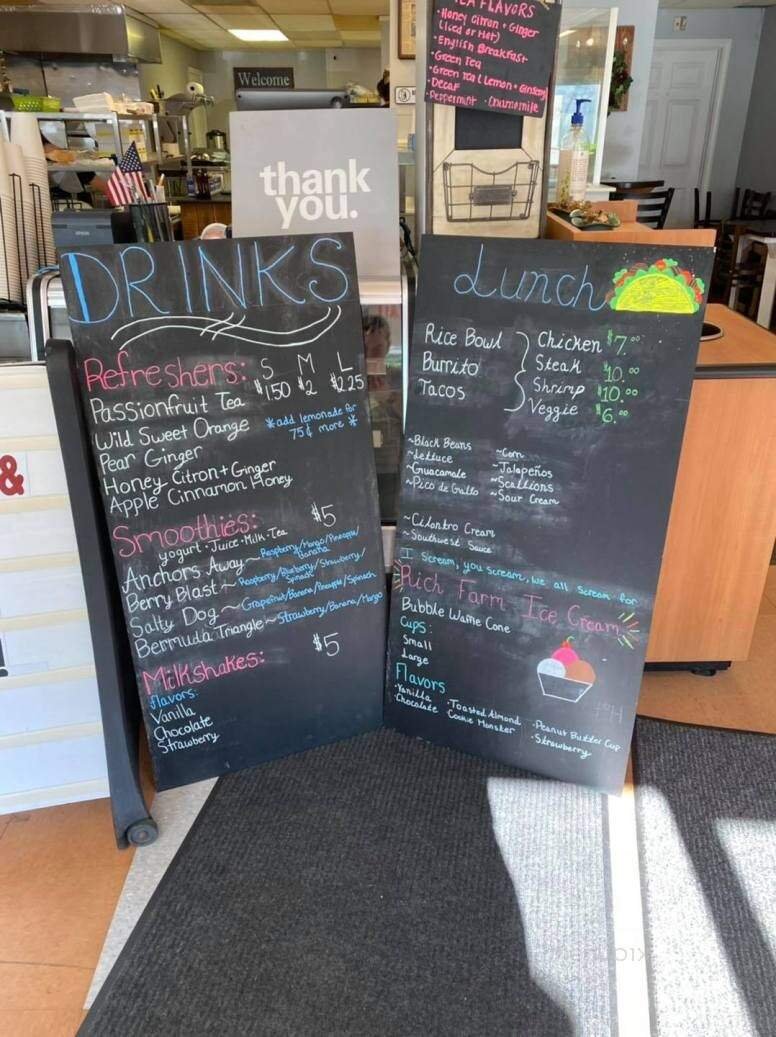 TEA FLAVORS
•Honey Citron + Ginger
(iced or Hot)
•English Breakfast
•Green Tea
•Green Tea (Lemon + Ginseng)
•Decaf
•Peppermint •Chamomile
Welcome
thank
you.
EPSON
&
DRINKS
Refreshers: S M L
$1.50 $2 $2.25
Passionfruit Tea
Wild Sweet Orange
*add lemonade for
75¢ more *
Pear Ginger
Honey Citron + Ginger
Apple Cinnamon Honey
Smoothies: $5
yogurt • Juice • Milk • Tea
Anchors Away ~ Raspberry/Mango/Pineapple/
Banana
Berry Blast ~ Raspberry/Blueberry/Strawberry/
Spinach
Salty Dog ~ Grapefruit/Banana/Pineapple/Spinach
Bermuda Triangle ~ Strawberry/Banana/Mango
Milkshakes: $5
flavors:
Vanilla
Chocolate
Strawberry
Lunch
Rice Bowl
Burrito
Tacos
Chicken $7.00
Steak 10.00
Shrimp $10.00
Veggie $6.00
~Black Beans
~Lettuce
~Guacamole
~Pico de Gallo
~Corn
~Jalapeños
~Scallions
~Sour Cream
~Cilantro Cream
~Southwest Sauce
I scream, you scream, we all scream for
Rich Farm Ice Cream
Bubble Waffle Cone
Cups:
Small
Large
Flavors
•Vanilla •Toasted Almond •Peanut Butter Cup
•Chocolate Cookie Monster •Strawberry